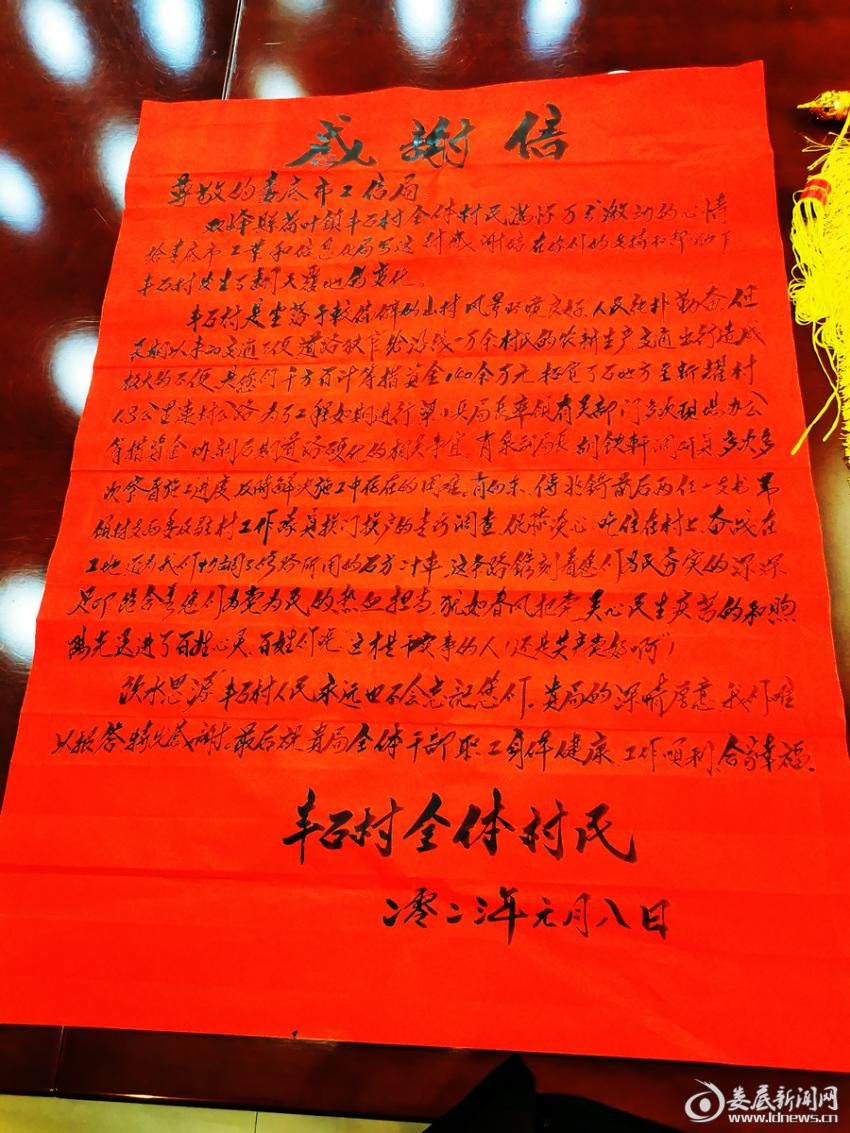 感謝信
尊敬的娄底市工信局
双峰县荷叶镇丰石村全体村民满怀万分激动的心情
给娄底市工业和信息化局写这封感谢信在你们的支持和帮助下
丰石村发生了翻天覆地的变化。
丰石村是坐落于较偏僻的山村风景环境良好、人民纯朴勤奋、但
长期以来的交通不便道路狭窄给沿线一万余村民的农耕生产交通出行造成
极大的不便,是您们千方百计筹措资金140余万元拓宽了石地方至新耀村
1.3公里来村公路,为了工程如期进行梁局长率领有关部门多次现场办公
筹措资金协调后期道路硬化的相关事宜,
次察看施工进度及时解决施工中存在的困难。
驻村工作队员挨门挨户的走访调查,吃住在村上,奋战在
工地,还为我们协调了修路所用的石方计车,这条路镌刻着您们为民务实的深深
足印,饱含着您们为党为民的热血担当,犹如春风把党关心民生疾苦的和煦
阳光送进了百姓心灵、百姓们说"这才是干实事的人!还是共产党好啊"!
饮水思源"丰石村人民永远也不会忘记您们。贵局的深情厚意我们难
以报答特此感谢。最后祝贵局全体干部职工身体健康、工作顺利、合家幸福。
丰石村全体村民
二零二三年元月八日
娄底新闻网
www.ldnews.cn